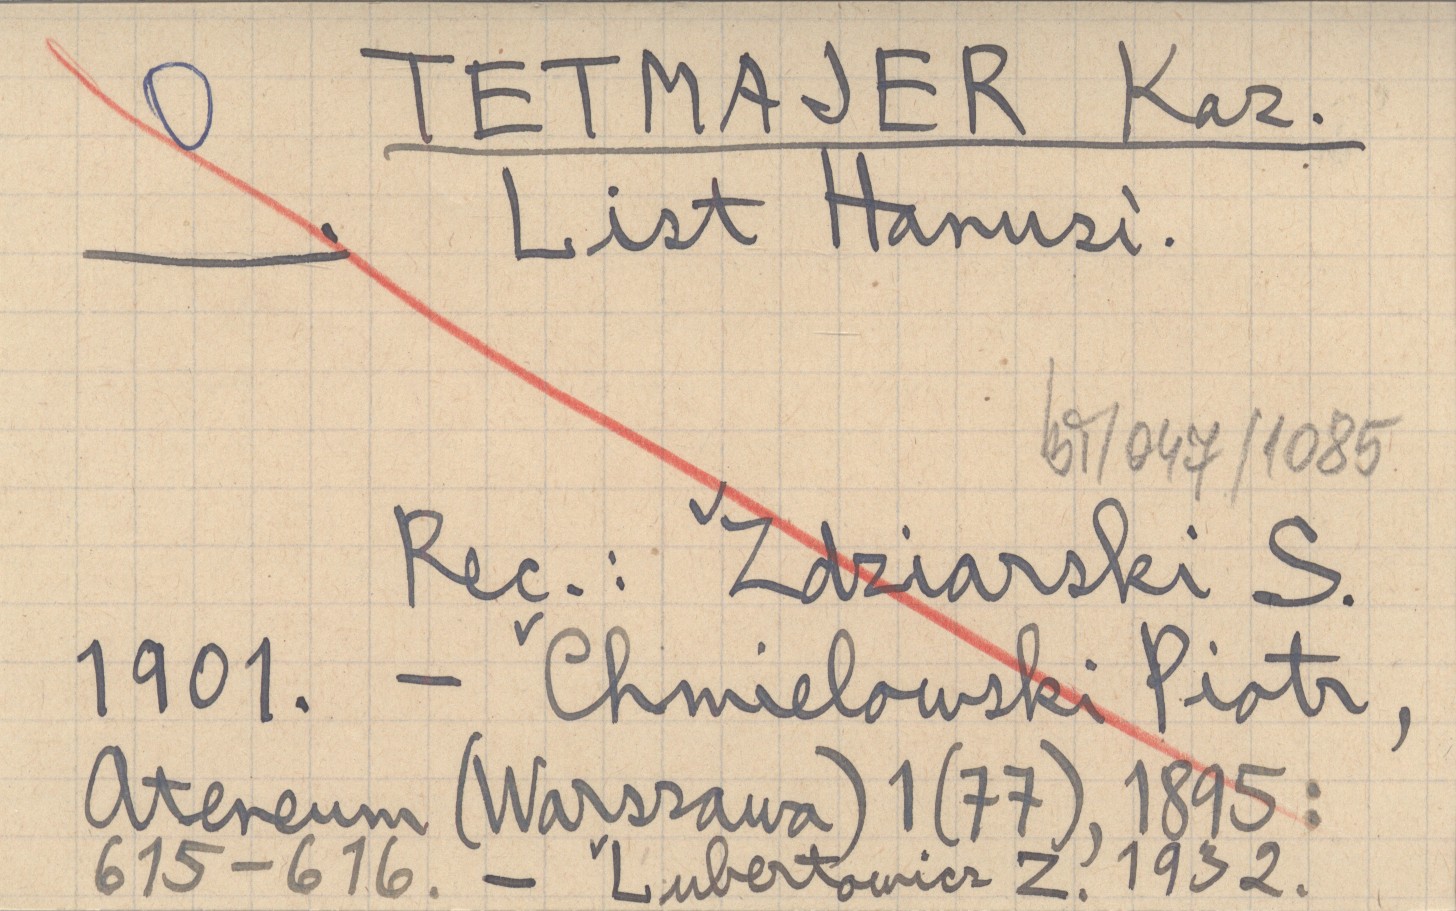 0 TETMAJER Kaz.
List Hanusi.
/047/1085
Rec.: Zdziarski S.
1901. – Chmielowski Piotr,
Ateneum (Warszawa) 1(77), 1895:
615–616. – Lubertowicz Z. 1932.